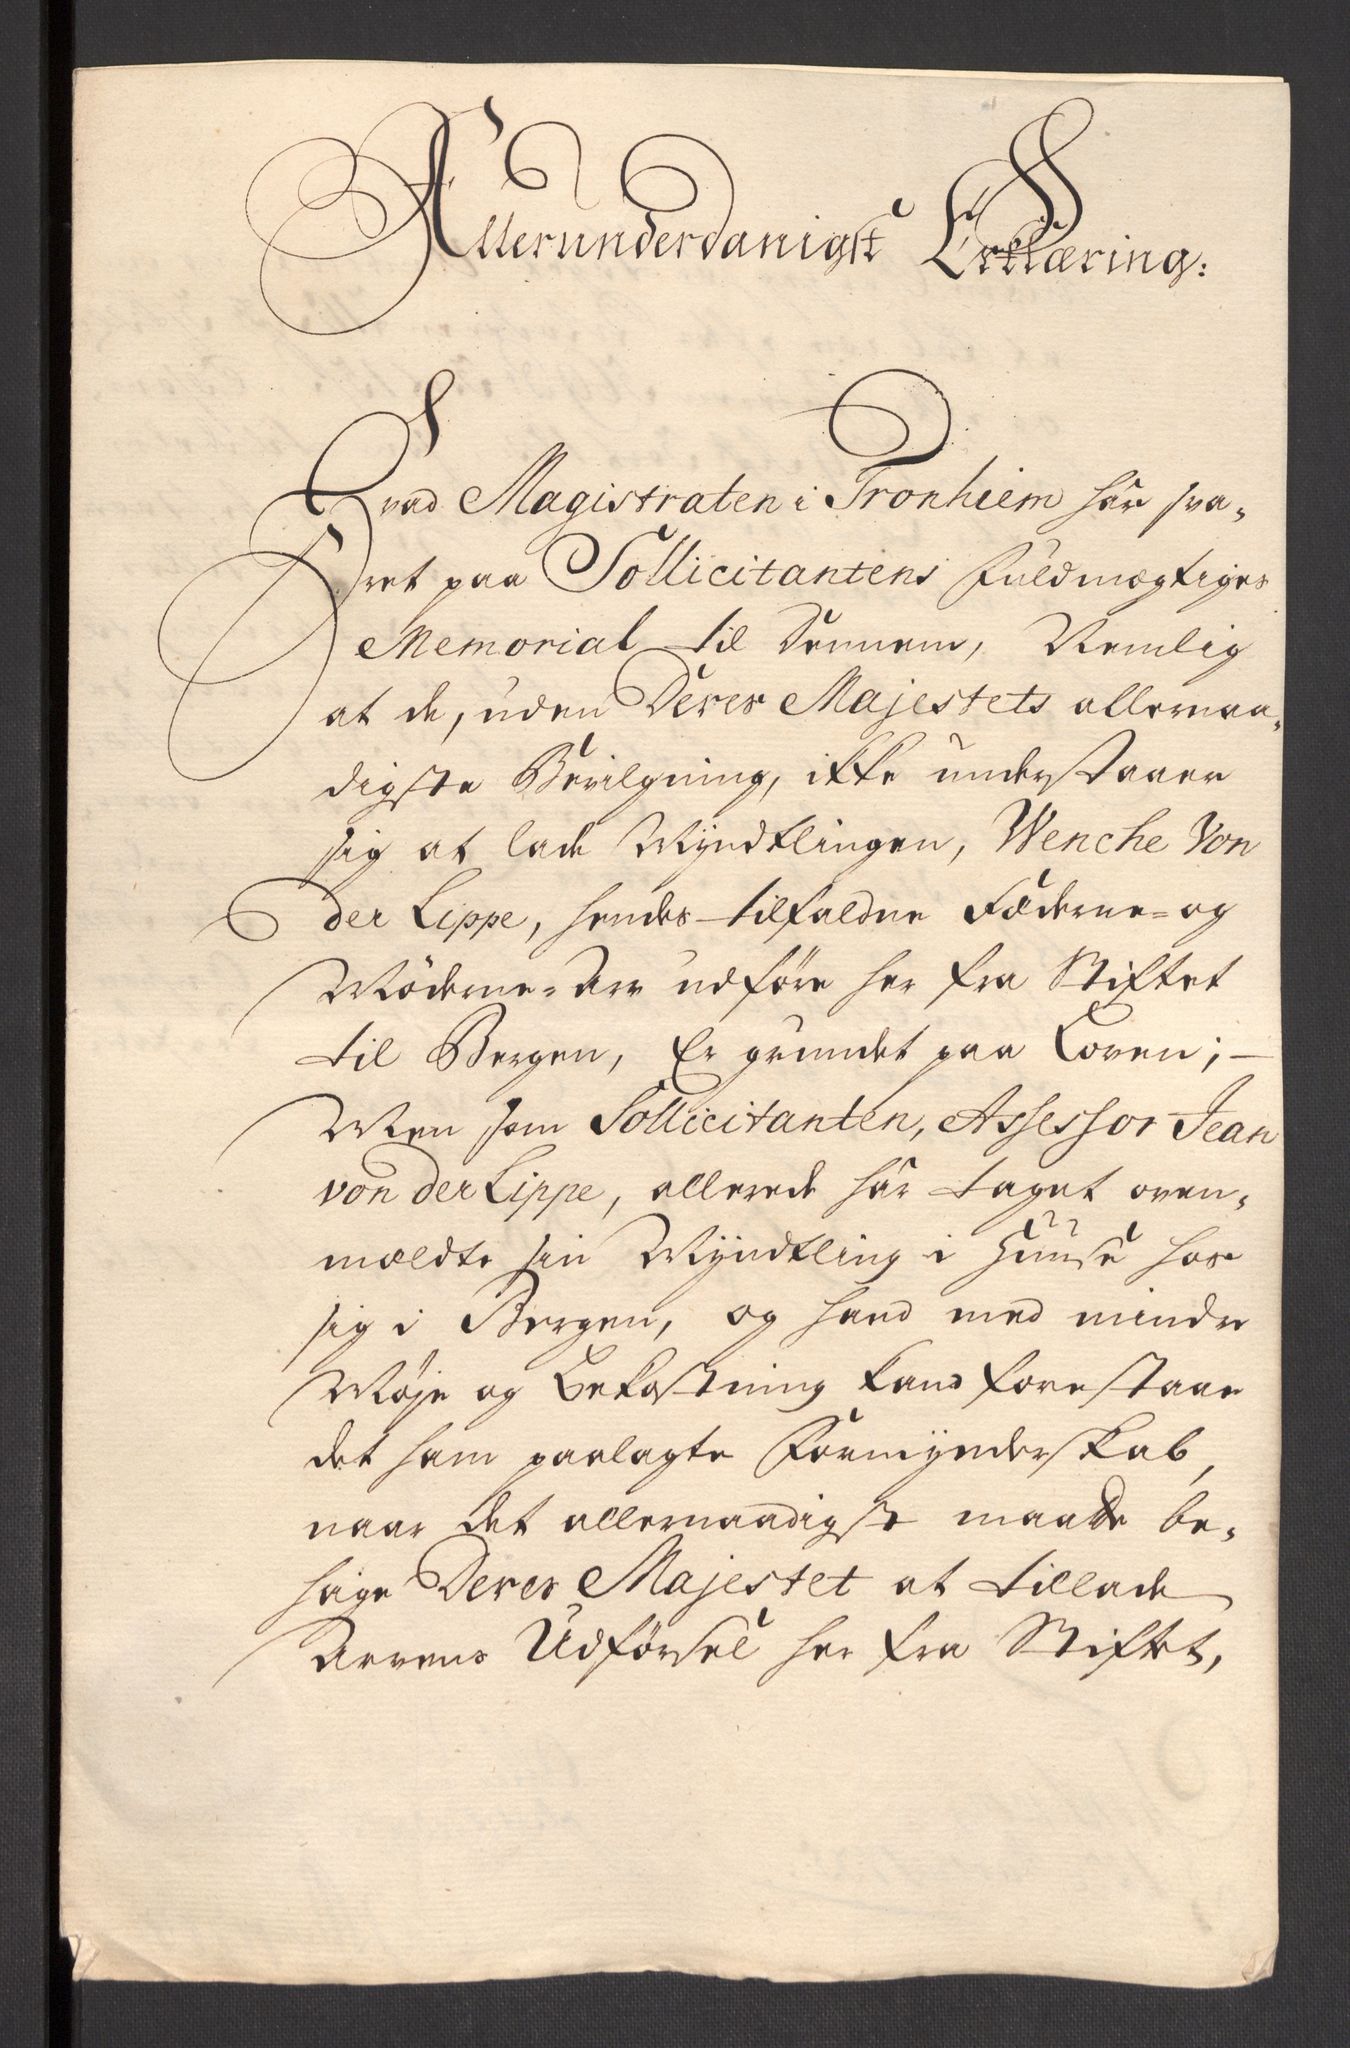 Allerunderdanigst Erklæring:
Hvad Magistraten i Tronhiem har sva-
ret paa Sollicitantens Fuldmægtiges
Memorial til dennem, Nemlig
at de, uden Deres Majestets allernaa-
digste Bevilgning, ikke understaaer
sig at lade Myndtlingen, Wenche Von
der Lippe, hendes tilfaldne Fæderne- og
Möderne-Arv udföre her fra Stiftet
til Bergen, Er grundet paa Loven; -
Men som Sollicitanten, Assessor Jean
von der Lippe, allerede har taget oven-
mældte sin Myndtling i Huuse hos
sig i Bergen, og hand med mindre
Möje og Bekostning kand forestaae
det ham paalagte Formynderskab,
naar det allernaadigst maatte be-
hage Deres Majestet at tillade
Arvens Udförsel her fra Stiftet,